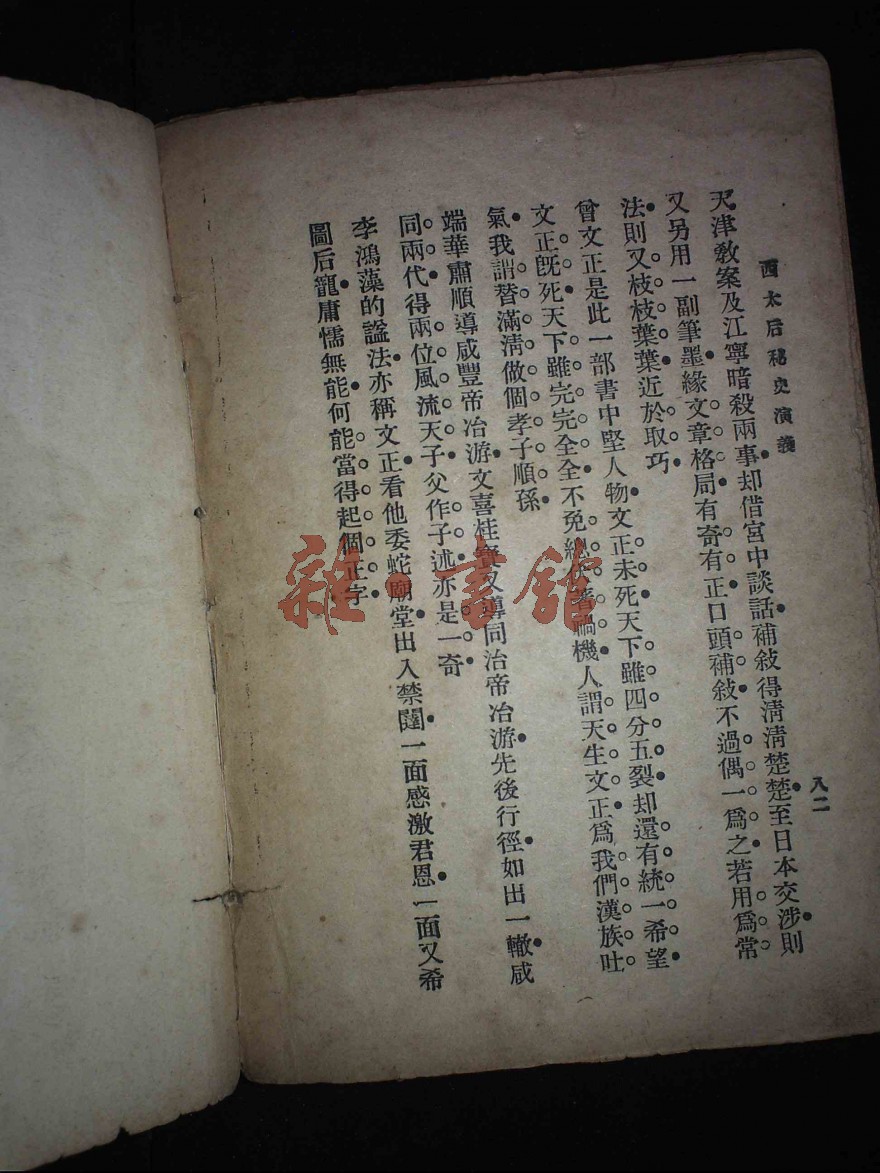 西太后秘史演義
八二
天津敎案及江寧暗殺兩事却借宮中談話補敍得淸淸楚楚至日本交涉則
又另用一副筆墨緣文章格局有奇有正口頭補敍不過偶一爲之若用爲常
法則又枝枝葉葉近於取巧
曾文正是此一部書中堅人物文正未死天下雖四分五裂却還有統一希望
文正旣死天下雖完完全全不免禍機人謂天生文正爲我們漢族吐
氣我謂替滿淸做個孝子順孫
端華肅順導咸豐帝冶游文喜桂寶又導同治帝冶游先後行徑如出一轍咸
同兩代得兩位風流天子父作子述亦是一奇
李鴻藻的謚法亦稱文正看他委蛇廟堂出入禁闥一面感激君恩一面又希
圖后寵庸懦無能何能當得起個正字
雜·書館